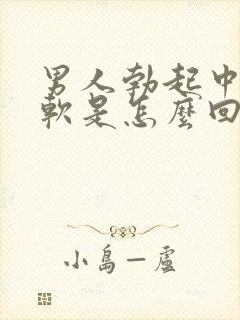 男人勃起中
軟是怎麼回
小島一盧